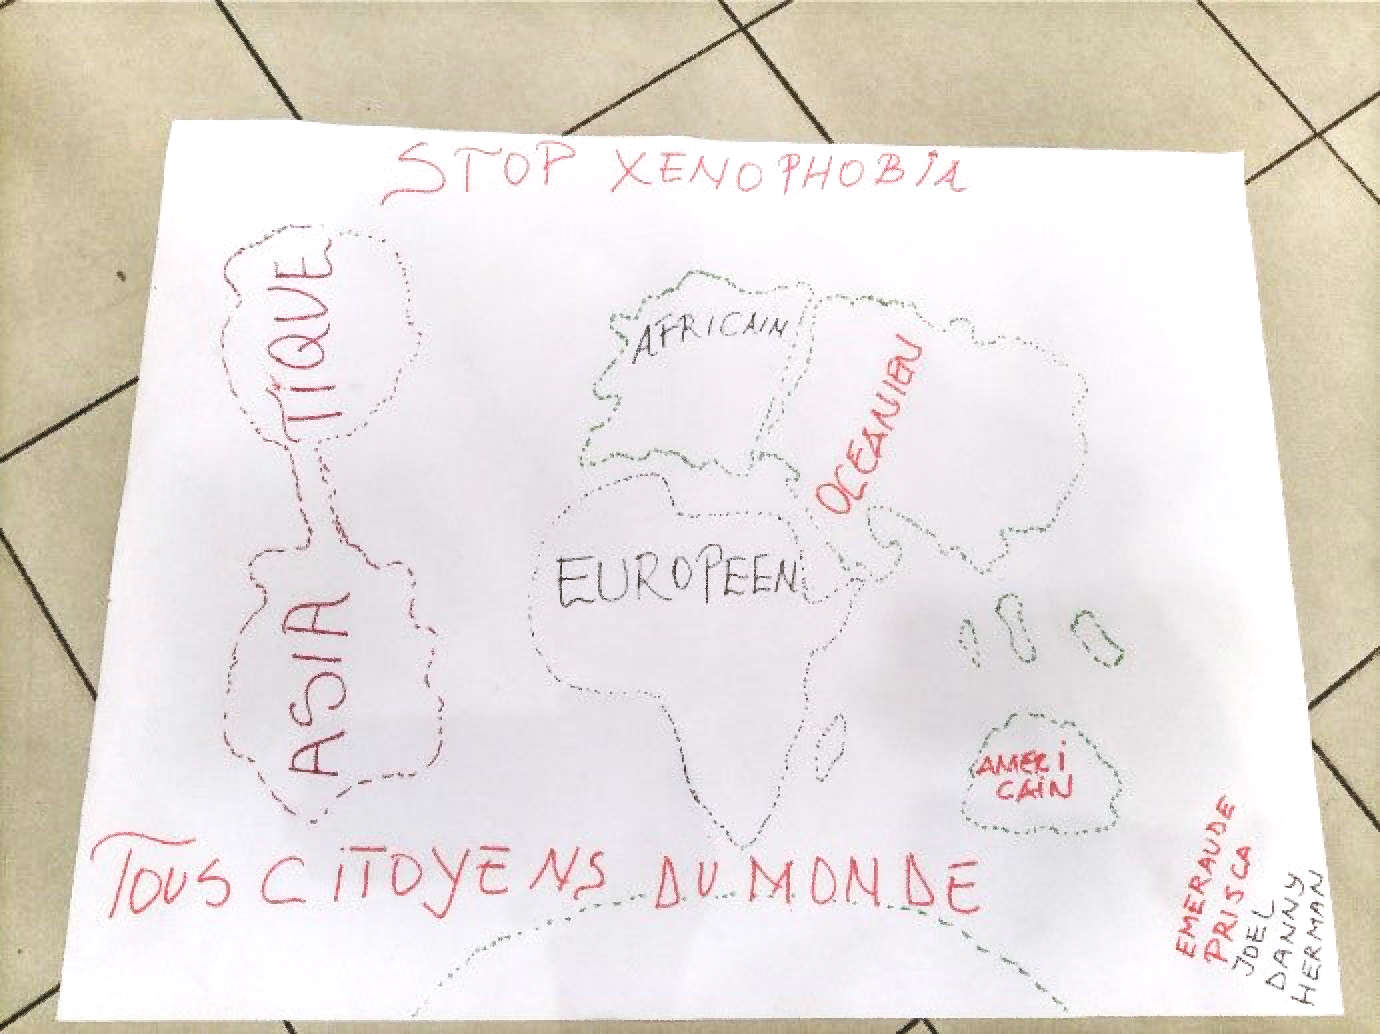 STOP XENOPHOBIA
ASIA TIQUE
AFRICAIN
OCEANIEN
EUROPEEN
AMERI
CAIN
TOUS CITOYENS DU MONDE
EMERAUDE
PRISCA
JOEL
DANNY
HERMAN